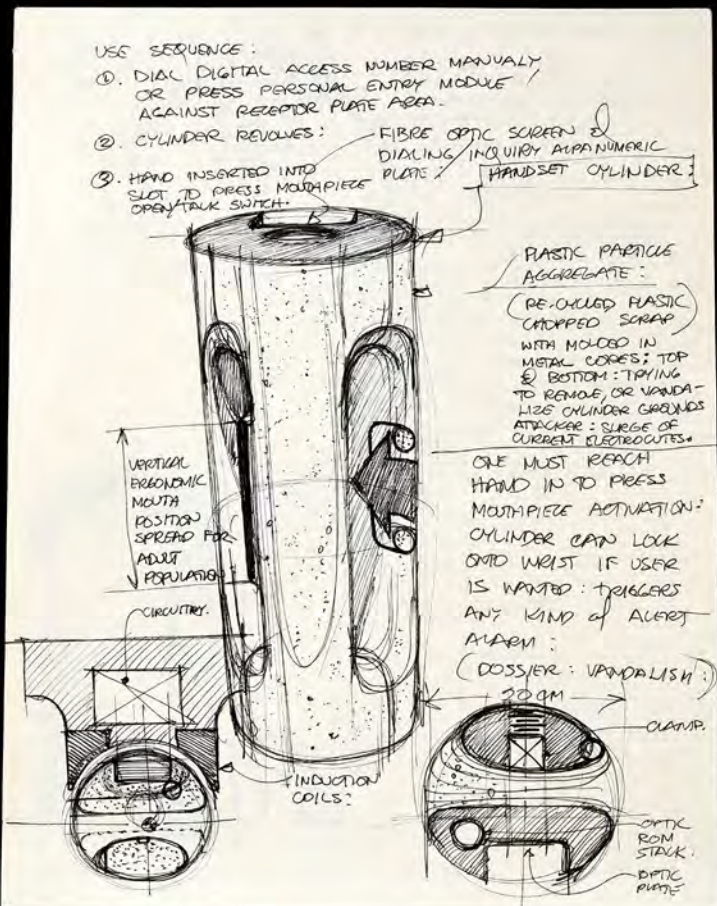 USE SEQUENCE :
①. DIAL DIGITAL ACCESS NUMBER MANUALY
OR PRESS PERSONAL ENTRY MODULE
AGAINST RECEPTOR PLATE AREA.
②. CYLINDER REVOLVES :
③. HAND INSERTED INTO
SLOT TO PRESS MOUTHPIECE
OPEN/TALK SWITCH.
FIBRE OPTIC SCREEN &
DIALING INQUIRY ALPANUMERIC
PLATE :
HANDSET CYLINDER :
PLASTIC PARTICLE
AGGREGATE :
(RE-CYCLED PLASTIC
CHOPPED SCRAP)
WITH MOLDED IN
METAL CORES; TOP
& BOTTOM : TRYING
TO REMOVE, OR VANDA-
LIZE CYLINDER GROUNDS
ATTACKER : SURGE OF
CURRENT ELECTROCUTES.
ONE MUST REACH
HAND IN TO PRESS
MOUTHPIECE ACTIVATION:
CYLINDER CAN LOCK
ONTO WRIST IF USER
IS WANTED : TRIGGERS
ANY KIND of ALERT
ALARM :
(DOSSIER : VANDALISM :)
VERTICAL
ERGONOMIC
MOUTH
POSITION
SPREAD FOR
ADULT
POPULATION
CIRCUITRY.
INDUCTION
COILS :
20 CM
CLAMP.
OPTIC
ROM
STACK.
OPTIC
PLATE